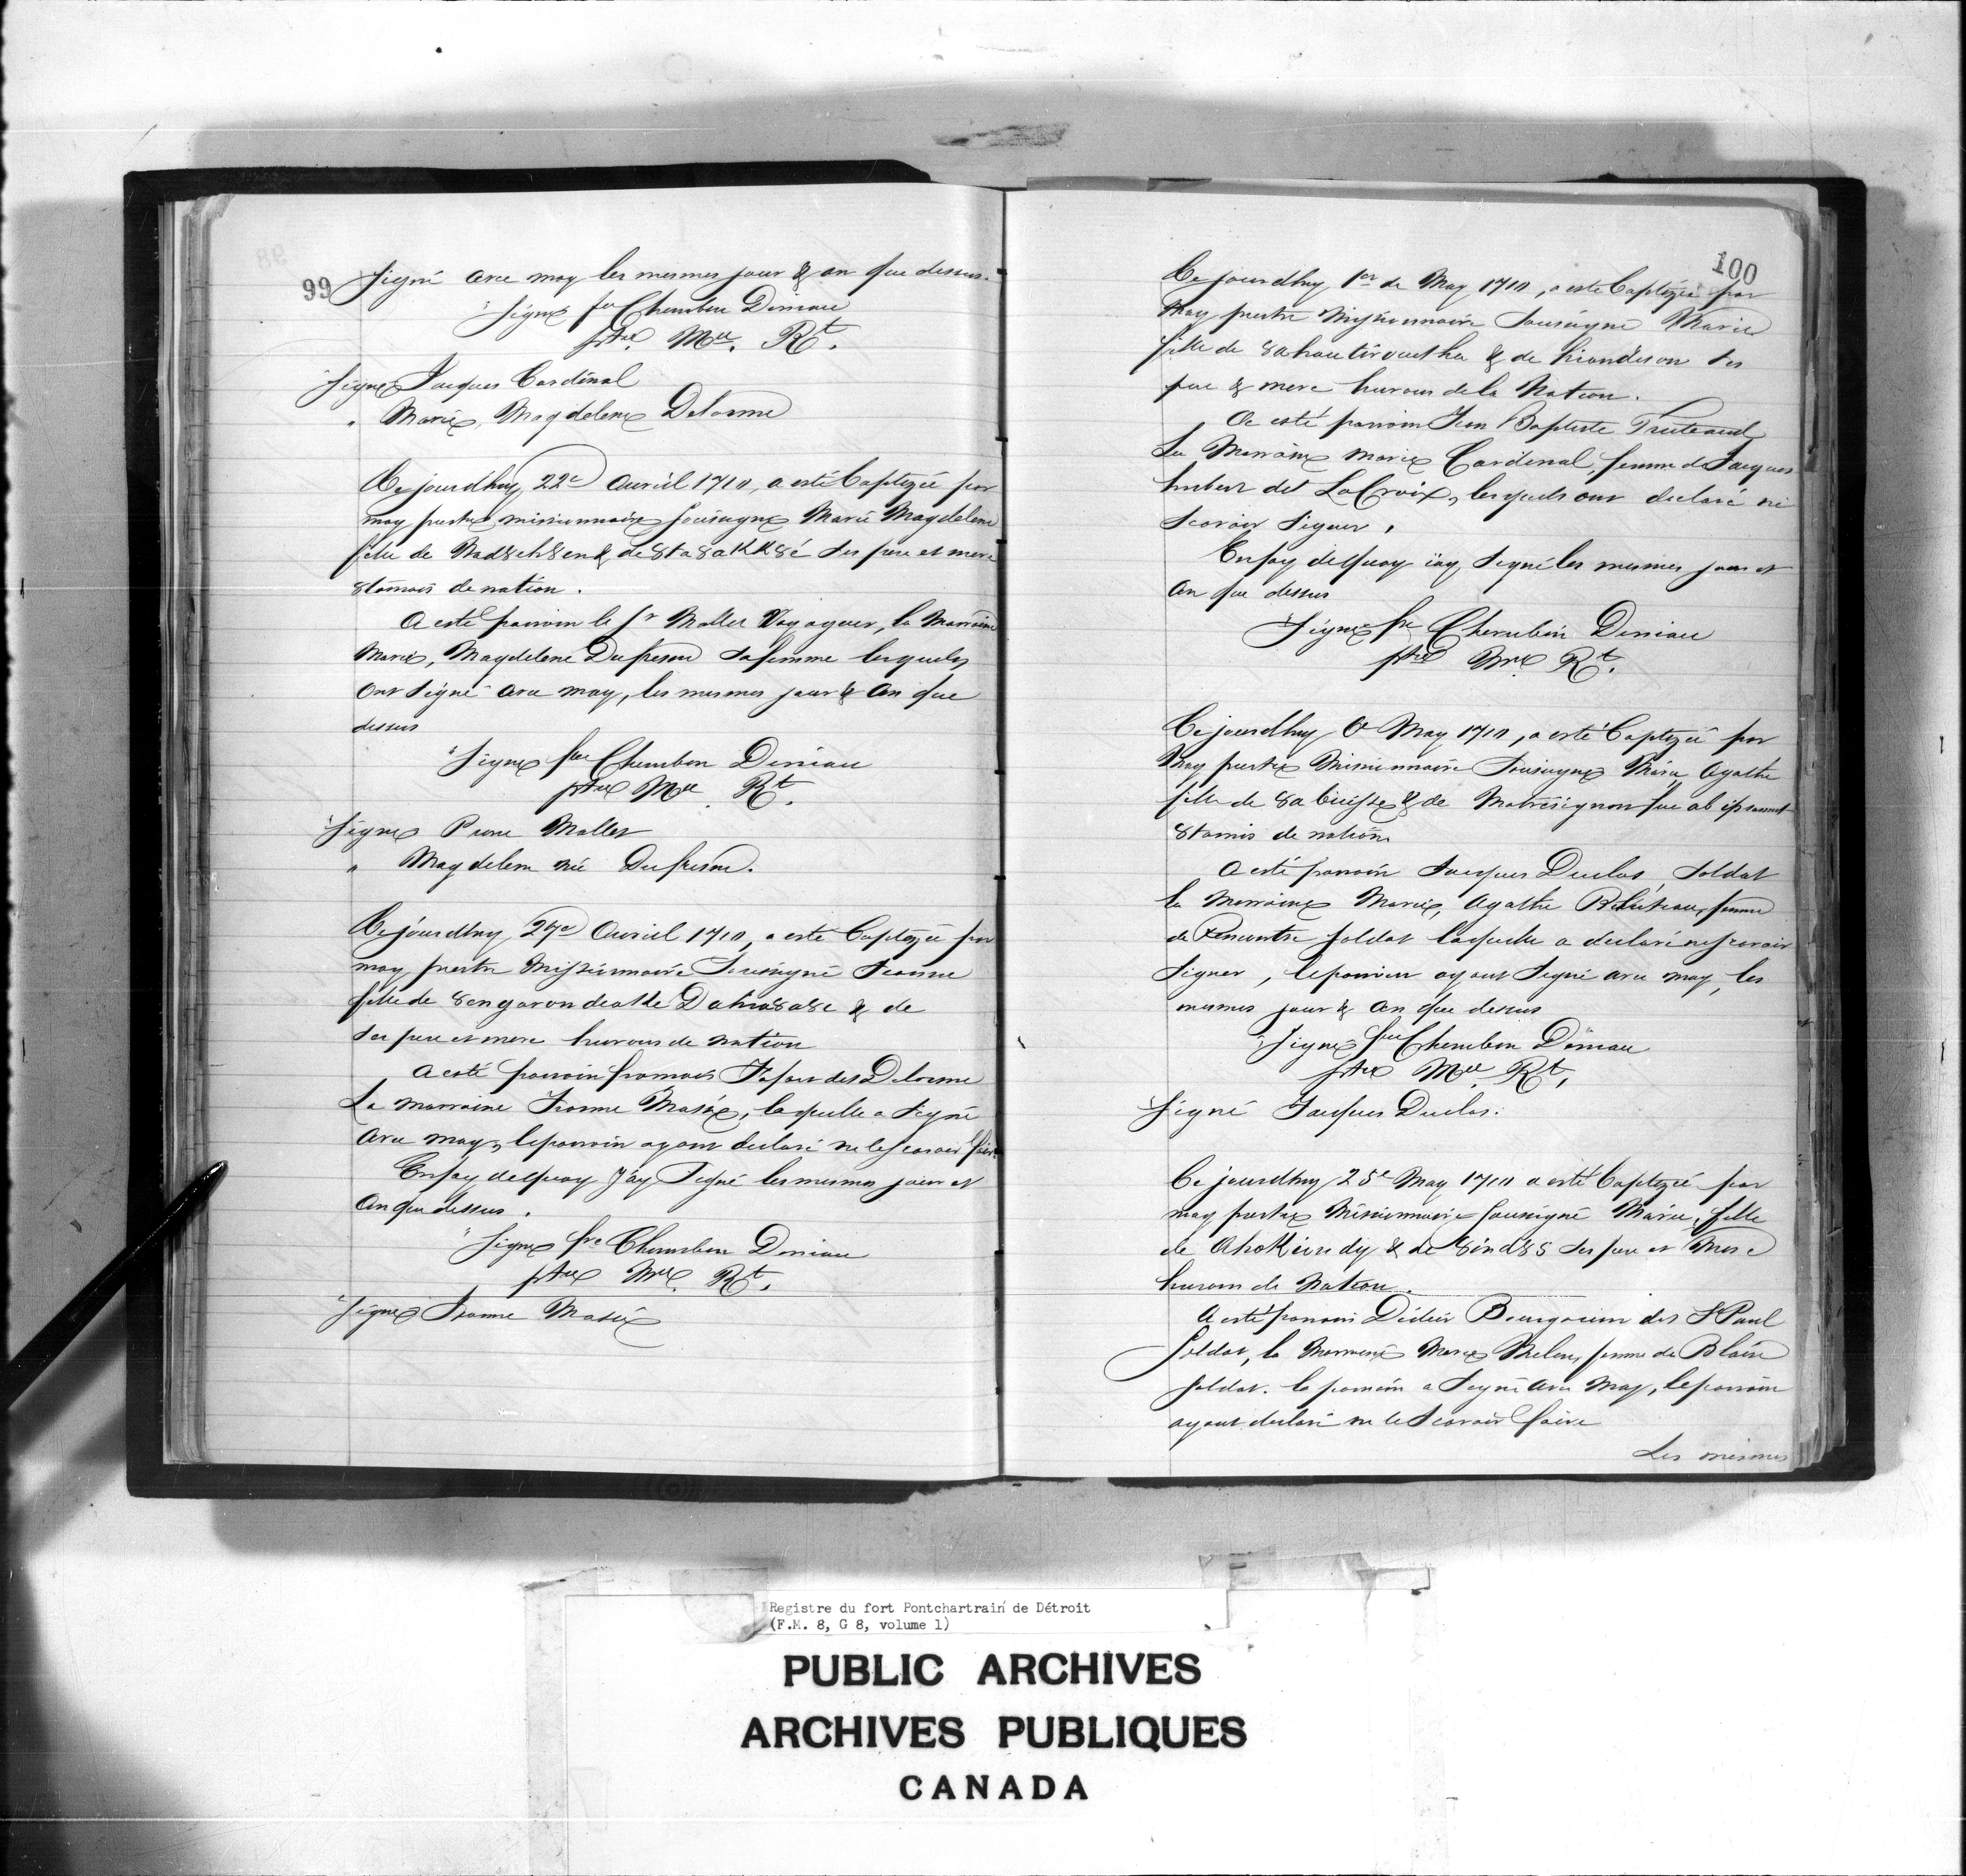 99
Signé avec moy les mesmes jour & an que dessus.
"Signé fre Cherubin Deniau
ptre Mre Rt.
"Signé Jacques Cardinal
" Marie Magdelene Delorme
Ce jourdhuy 22e Avril 1710, a esté baptizée par
moy prestre missionnaire sousigné Marie Magdelene
fille de & de ses pere et mere
8tamois de nation.
A esté parrain le Sr Mallet Voyageur, la Marraine
Marie, Magdelene Dufresne sa femme lesquels
ont signé avec moy, les mesmes jour & an que
dessus
"Signé fre Cherubin Deniau
ptre Mre Rt.
"Signé Pierre Mallet
" Magdelene née Dufresne.
Ce jourdhuy 27e Avril 1710, a esté baptizée par
moy prestre Missionnaire Sousigné Jeanne
fille de & de
ses pere et mere hurons de nation
A esté parrain francois delorme
La marraine Jeanne Masée, laquelle a signé
avec moy, le parrain ayant declaré ne le scavoir faire
En foy de quoy J'ay Signé les mesmes jour et
an que dessus.
"Signé fre Cherubin Deniau
ptre Mre Rt.
"Signé Jeanne Masée
100
Ce jourdhuy 1er de May 1710, a esté baptizée par
Moy prestre Missionnaire Sousigné Marie
fille de 8ahoutirouthu & de hiandeson ses
pere & mere hurons de la Nation.
A esté parrain Jean Baptiste Truteaud
La Marraine Marie Cardinal, femme de Jacques
hubert dit LaCroix, lesquels ont declaré ne
scavoir signer,
En foy de quoy iay signé les mesmes jour et
an que dessus
"Signé fre Cherubin Deniau
ptre Mre Rt.
Ce jourdhuy May 1710, a esté baptizée par
Moy prestre Missionnaire Sousigné Marie Agathe
fille de & de
8tamis de nation
A esté parrain Jacques Duclos, Soldat
la Marraine Marie, Agathe femme
de Rencontre soldat laquelle a declaré ne scavoir
signer, le parrain ayant signé avec moy, les
mesmes jour & an que dessus
"Signé fre Cherubin Deniau
ptre Mre Rt.
"Signé Jacques Duclos.
Ce jourdhuy 25e May 1710 a esté baptizée par
moy prestre Missionnaire sousigné Marie, fille
de & de ses pere et Mere
hurons de Nation.
A esté parrain Didier Bourgouin dit St Paul
Soldat, la Marraine Marie femme de Blain
soldat. le parrain a signé avec Moy, le parrain
ayant declaré ne le scavoir faire
Les mesmes
Registre du fort Pontchartrain de Détroit
(F.M. 8, G 8, volume 1)
PUBLIC ARCHIVES
ARCHIVES PUBLIQUES
CANADA